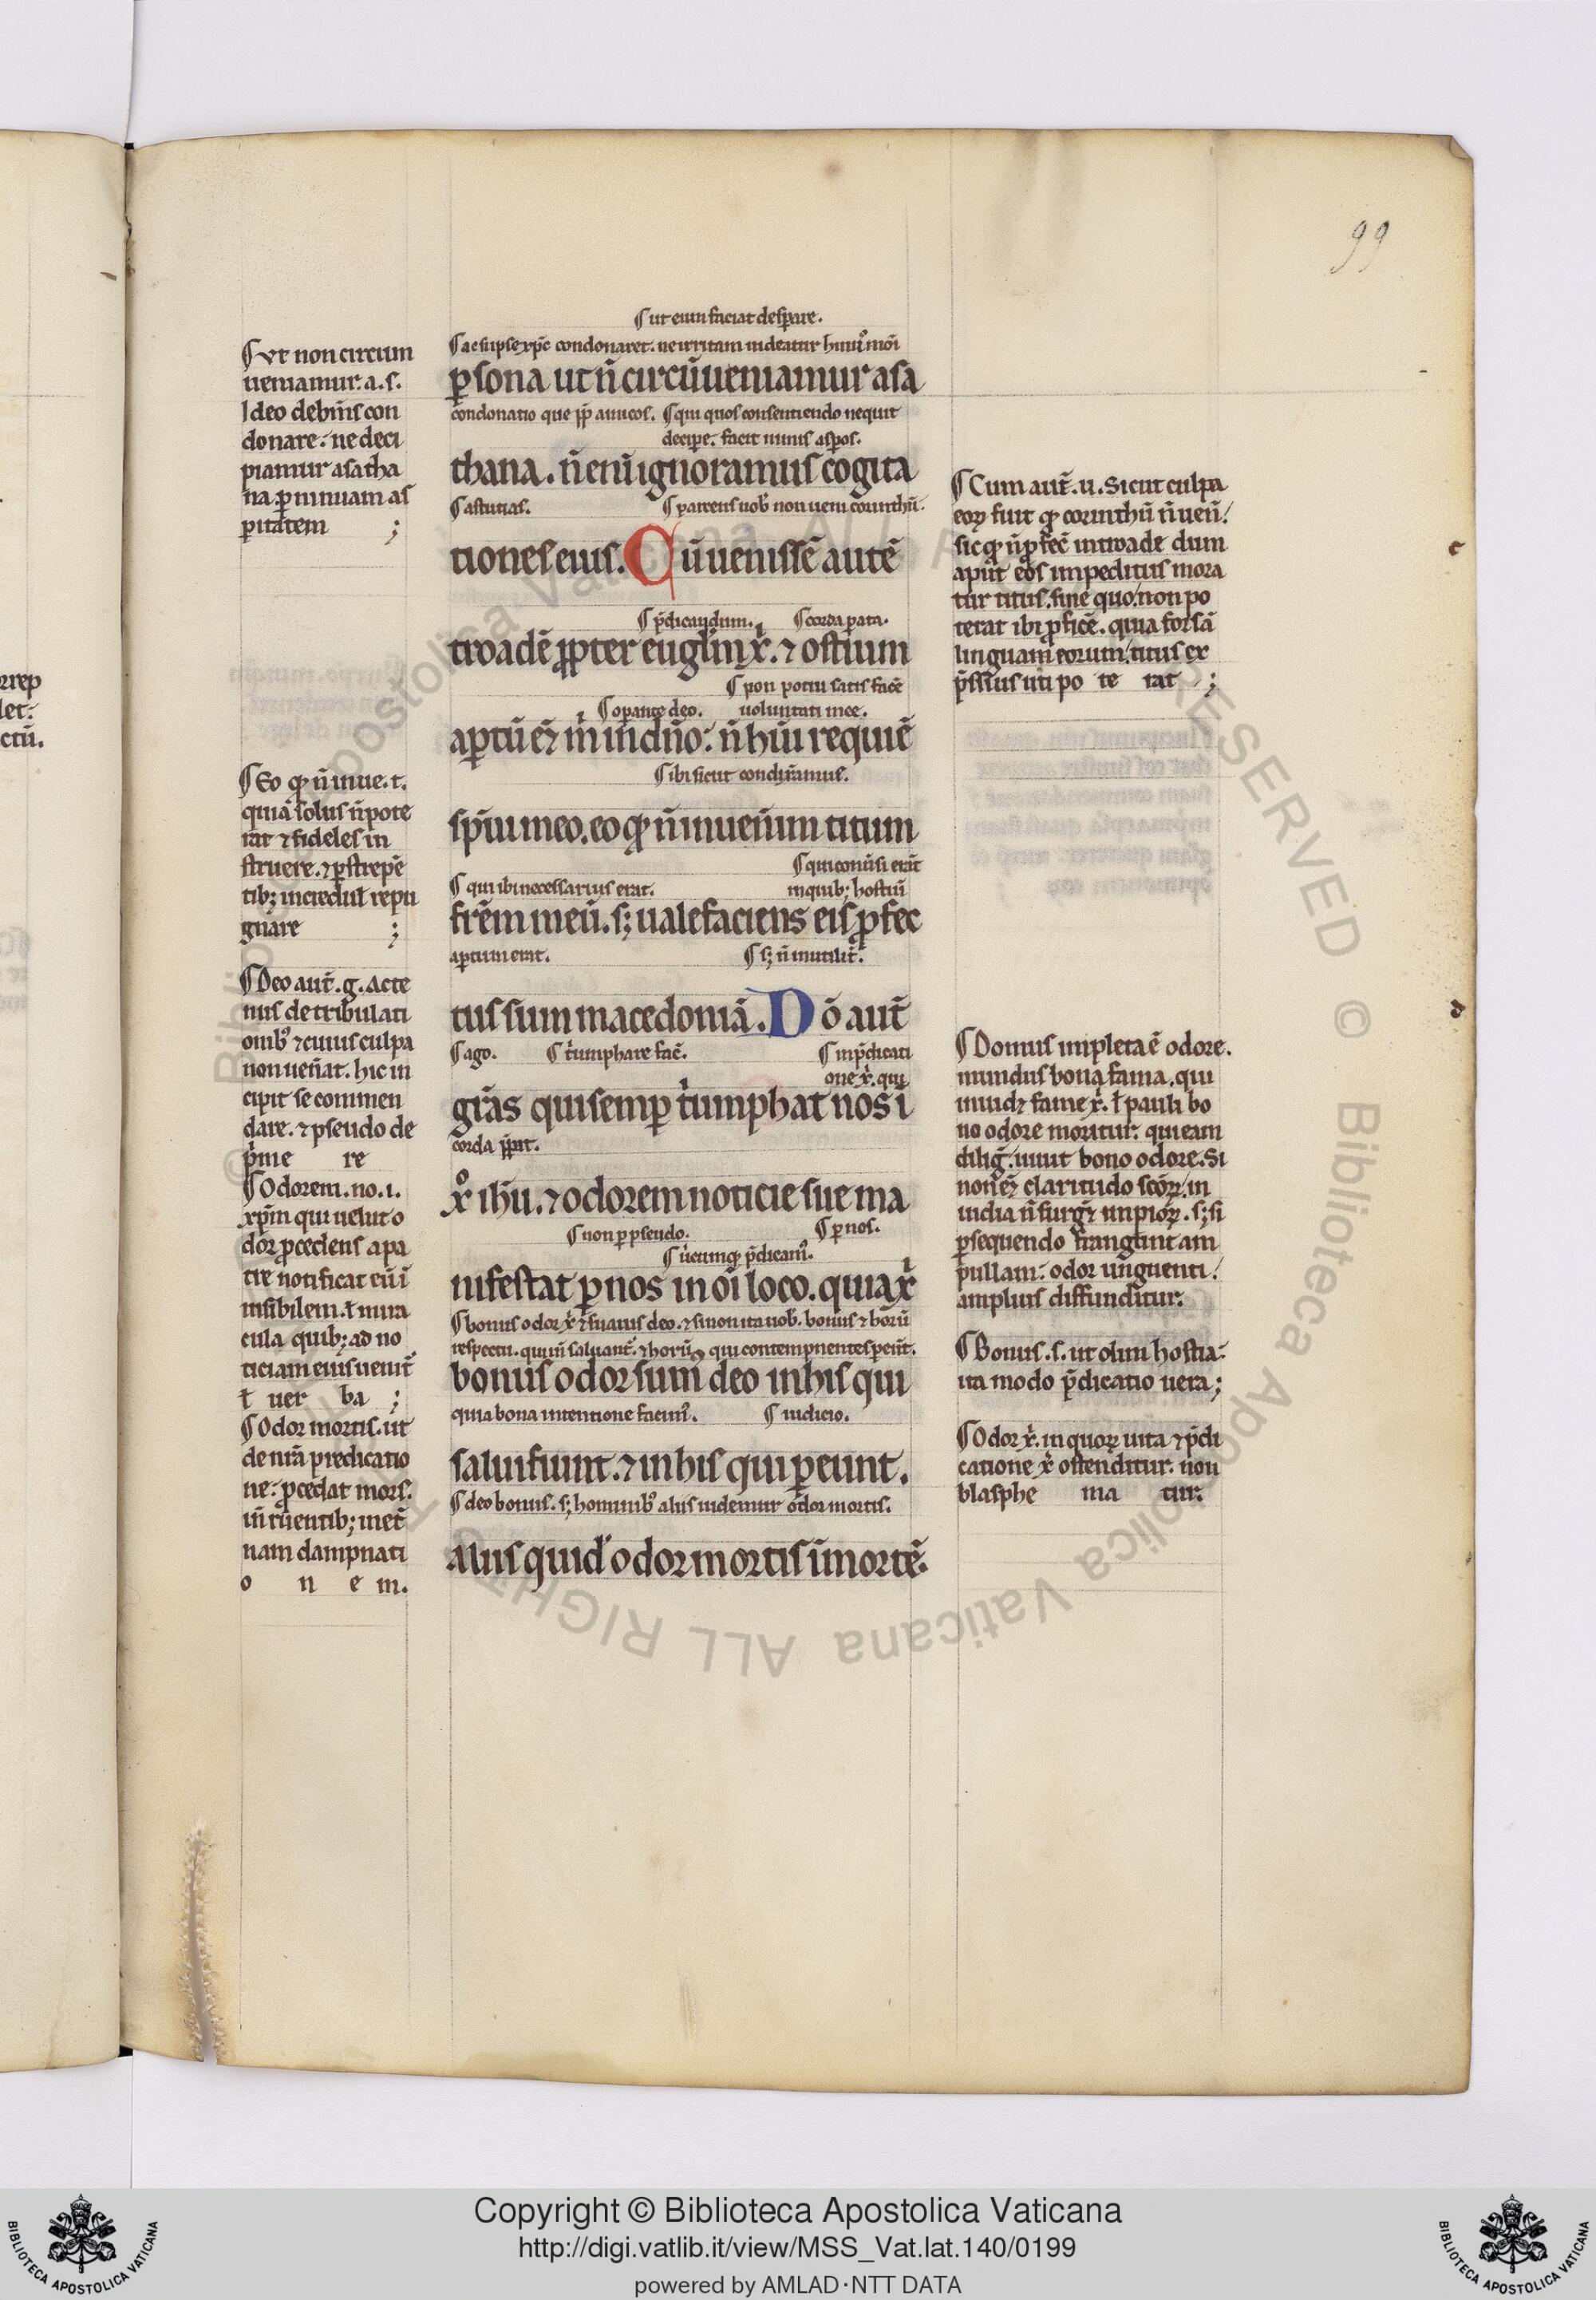 99
¶ ut eum faciat desꝑare.
¶ ac si ipse xp̄c condonaret. ne irritam uideatur huiꝰmōi
ꝑsona ut n̄ circūueniamur a sa
condonatio que ꝓp̄ amicos. ¶ qui quos consentiendo nequit
deciꝑe. facit nimis asꝑos.
thana. n̄ enī ignoramus cogita
¶ astutias. ¶ parcens uob̄ non ueni corinthū.
tiones eius. Cū uenissē autē
¶ p̄dicandum. ¶ corda parata.
troadē ꝓpter euglīm xͥ. ⁊ ostium
¶ non potui satis facē
¶ oꝑante deo. uoluntati mee.
aꝑtū eēt m̄ in dn̄o: n̄ hūi requiē
¶ ibi sicut condixeramus.
sp̄iui meo. eo qꝫ n̄ inuen̄im titum
¶ qui conūsi erāt
¶ qui ibi necessarius erat. in quibꝫ hostiū
fr̄em meū. sꝫ uale faciens eis ꝓfec
aꝑtum erat. ¶ sꝫ n̄ inutilit̄.
tus sum macedoniā. Dō aut̄
¶ ago. ¶ tͥumphare fac̄. ¶ in p̄dicati
one xͥ. qui
gr̄as qui semꝑ tͥumphat nos ī
corda ꝓp̄it.
xͦ ih̄u. ⁊ odorem noticie sue ma
¶ non ꝑ pseudo. ¶ ꝑ nos.
¶ ub̄icumqꝫ p̄dicamꝰ.
nifestat ꝑ nos in oī loco. quia xͥ
¶ bonus odor xͥ ⁊ suauis deo. ⁊ si non ita uob̄. bonus ⁊ horū
respectu. qui in saluant̄. ⁊ horū qui contempnentes pereūt.
bonus odor sum̄ deo in his qui
quia bona intentione facimꝰ. ¶ iudicio.
salui fiunt. ⁊ in his qui ꝑeunt.
¶ deo bonus. sꝫ hominibꝰ aliis uidemur odor mortis.
Aliis quid̄ odor mortis ī mortē.
¶ Vt non circum
ueniamur. a. s.
Ideo debemꝰ con
donare: ne deci
piamur a satha
na. ꝑ nimiam as
ꝑitatem ;
¶ Eo qꝫ n̄ inue. t.
quia solus n̄ pote
rat ⁊ fideles in
struere. ⁊ ꝑstrepē
tibꝫ incredul̄ repu
gnare ;
¶ Deo aut̄. g. Acte
nus de tribulati
onibꝰ ⁊ cuius culpa
non uen̄at. hic in
cipit se commen
dare. ⁊ pseudo de
pͥme re
¶ Odorem. no. i.
xp̄m qui uelut o
dor ꝓcedens a pa
tre notificat eū ī
uisibilem. ł mira
cula quibꝫ ad no
ticiam eius uenit̄
ł uer ba ;
¶ Odor mortis. ut
de nr̄a predicatio
ne: ꝓcedat mors.
in̄ ruentibꝫ in et̄
nam dampnati
o n e m.
¶ Cum aut̄. u. Sicut culpa
eoꝝ fuit qꝫ corinthū n̄ uen̄.
sic qꝫ n̄ ꝓfec̄ in troade dum
aput eos impeditus mora
tur titus. sine quo. non po
terat ibi ꝓficē. quia forsā
linguam eorum: titus ex
p̄ssius uti po te rat ;
¶ Domus impleta ē odore.
mundus bona fama. qui
inuidꝫ fame xͥ. ł pauli bo
no odore moritur. qui eam
diliḡ. uiuit bono odore. Si
non eēt claritudo scōꝝ. in
uidia n̄ surg̅et impioꝝ. sꝫ si
ꝑsequendo frangunt am
pullam: odor unguenti.
amplius diffunditur.
¶ Bonus. s. ut olim hostia:
ita modo p̄dicatio uera;
¶ Odor xͥ. in quoꝝ uita ⁊ p̄di
catione xͥ ostenditur. non
blasphe ma tur.
c
d
rrep
let:
ctū.
© Biblioteca Apostolica Vaticana ALL RIGHTS RESERVED © Biblioteca Apostolica Vaticana ALL RIGHTS
BIBLIOTECA APOSTOLICA VATICANA
Copyright © Biblioteca Apostolica Vaticana
http://digi.vatlib.it/view/MSS_Vat.lat.140/0199
powered by AMLAD·NTT DATA
BIBLIOTECA APOSTOLICA VATICANA